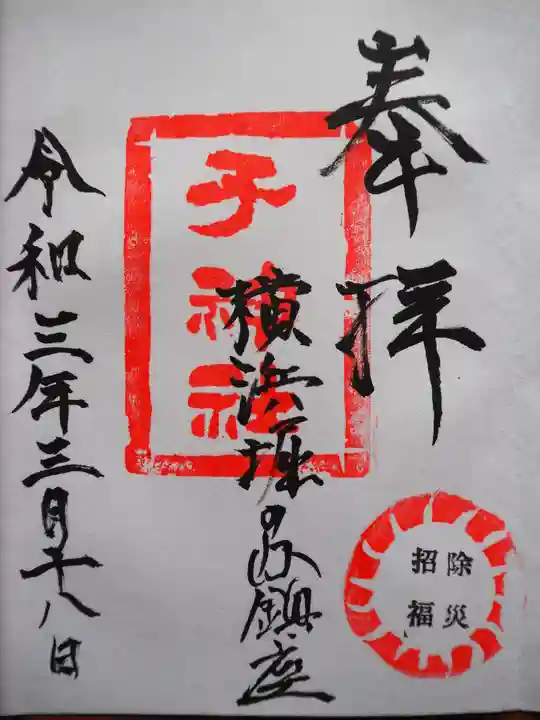 奉拝
除災
招福
子神社
横浜堀之内鎮座
令和三年三月十八日